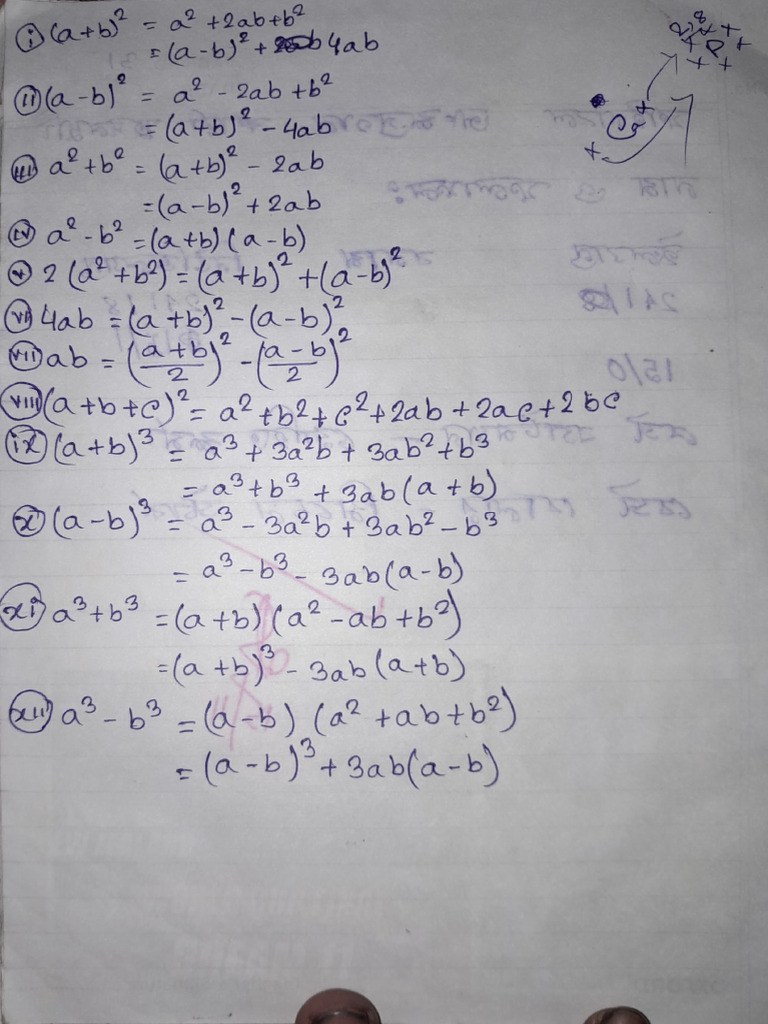 (i) (a+b)² = a² + 2ab + b²
= (a-b)² + 4ab
(ii) (a-b)² = a² - 2ab + b²
= (a+b)² - 4ab
(iii) a² + b² = (a+b)² - 2ab
= (a-b)² + 2ab
(iv) a² - b² = (a+b) (a-b)
(v) 2 (a² + b²) = (a+b)² + (a-b)²
(vi) 4ab = (a+b)² - (a-b)²
(vii) ab = ((a+b)/2)² - ((a-b)/2)²
(viii) (a+b+c)² = a² + b² + c² + 2ab + 2ac + 2bc
(ix) (a+b)³ = a³ + 3a²b + 3ab² + b³
= a³ + b³ + 3ab(a+b)
(x) (a-b)³ = a³ - 3a²b + 3ab² - b³
= a³ - b³ - 3ab(a-b)
(xi) a³ + b³ = (a+b) (a² - ab + b²)
= (a+b)³ - 3ab(a+b)
(xii) a³ - b³ = (a-b) (a² + ab + b²)
= (a-b)³ + 3ab(a-b)